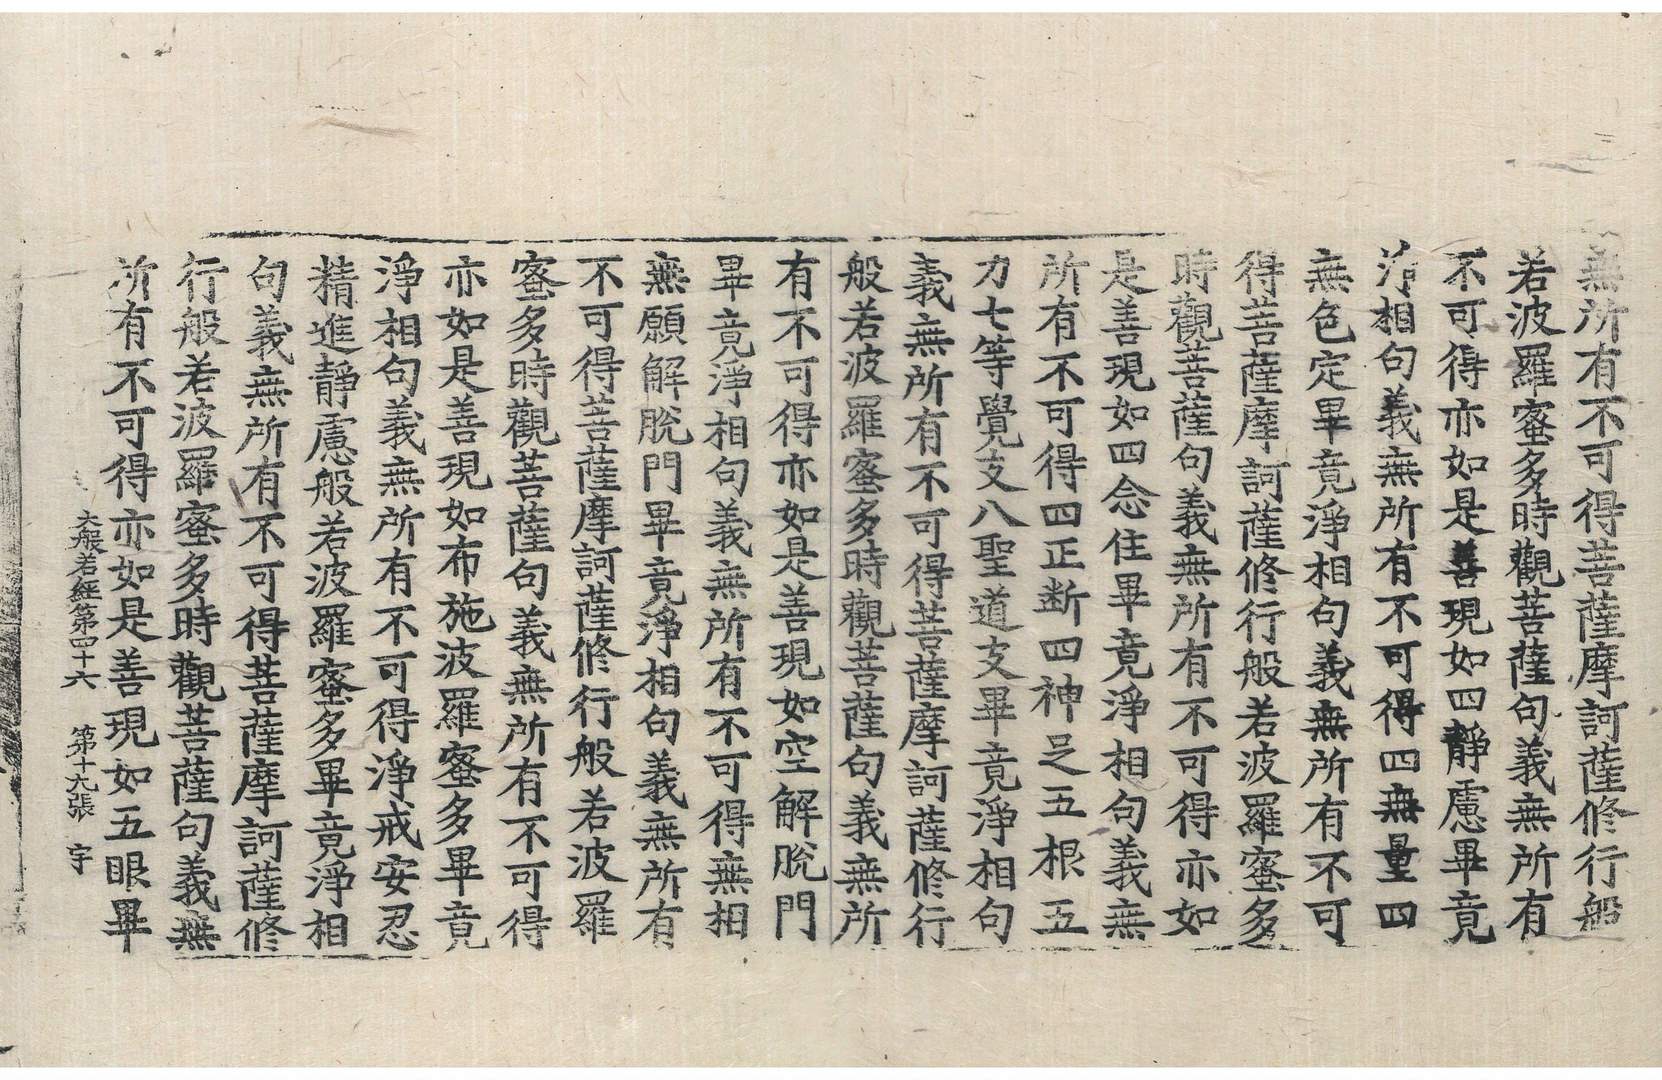 無所有不可得菩薩摩訶薩修行般
若波羅蜜多時觀菩薩句義無所有
不可得亦如是善現如四靜慮畢竟
淨相句義無所有不可得四無量四
無色定畢竟淨相句義無所有不可
得菩薩摩訶薩修行般若波羅蜜多
時觀菩薩句義無所有不可得亦如
是善現如四念住畢竟淨相句義無
所有不可得四正断四神足五根五
力七等覺支八聖道支畢竟淨相句
義無所有不可得菩薩摩訶薩修行
般若波羅蜜多時觀菩薩句義無所
有不可得亦如是善現如空解脫門
畢竟淨相句義無所有不可得無相
無願解脫門畢竟淨相句義無所有
不可得菩薩摩訶薩修行般若波羅
蜜多時觀菩薩句義無所有不可得
亦如是善現如布施波羅蜜多畢竟
淨相句義無所有不可得淨戒安忍
精進靜慮般若波羅蜜多畢竟淨相
句義無所有不可得菩薩摩訶薩修
行般若波羅蜜多時觀菩薩句義無
所有不可得亦如是善現如五眼畢
大般若經第四十六 第十九張 宇